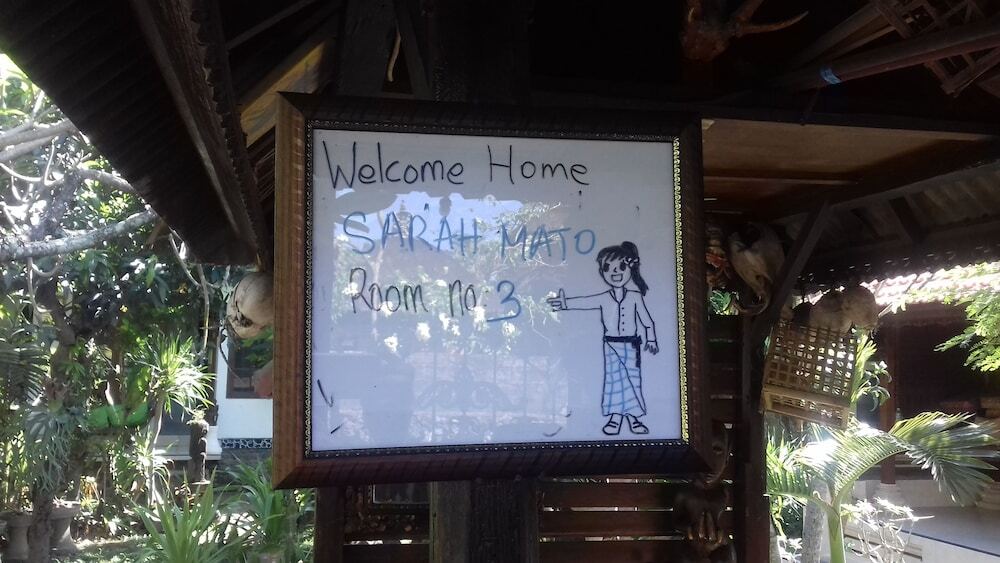 Welcome Home
SARAH MATO
Room no: 3